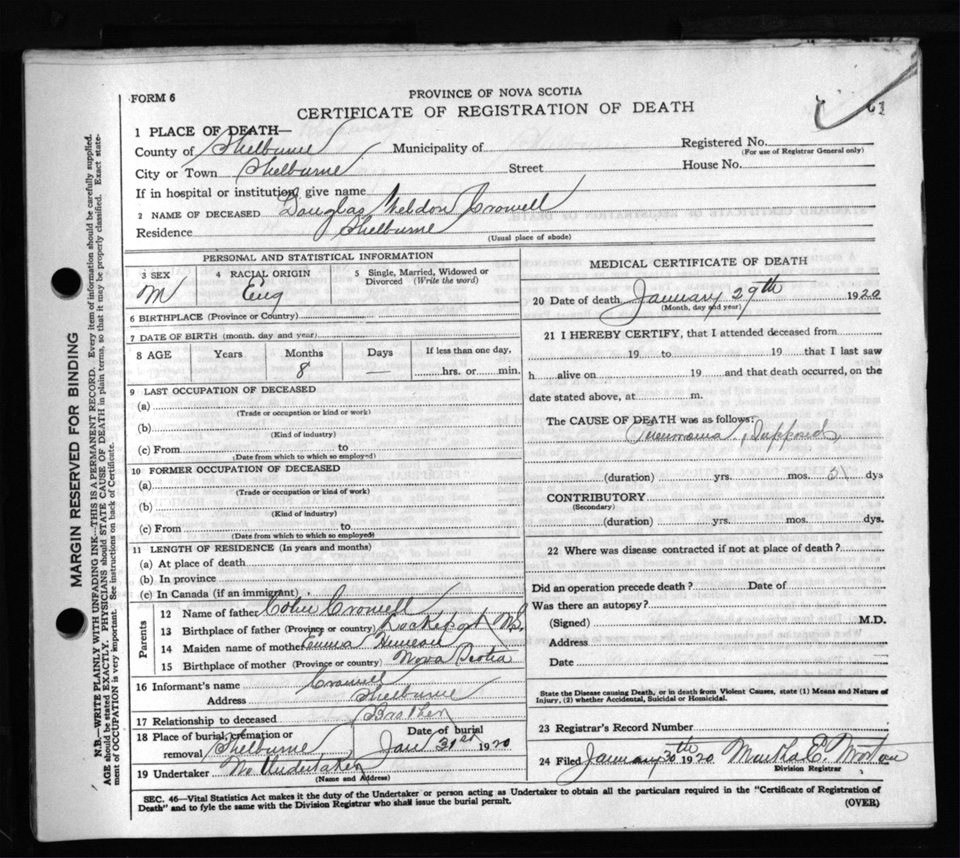 FORM 6
PROVINCE OF NOVA SCOTIA
CERTIFICATE OF REGISTRATION OF DEATH
61
1 PLACE OF DEATH—
County of Shelburne Municipality of Registered No.
(For use of Registrar General only)
City or Town Shelburne Street House No.
If in hospital or institution, give name
2 NAME OF DECEASED Douglas Weldon Crowell
Residence Shelburne
(Usual place of abode)
PERSONAL AND STATISTICAL INFORMATION
3 SEX M
4 RACIAL ORIGIN Eng
5 Single, Married, Widowed or Divorced (Write the word)
6 BIRTHPLACE (Province or Country)
7 DATE OF BIRTH (month, day and year)
8 AGE Years Months Days If less than one day,
8 — hrs. or min.
9 LAST OCCUPATION OF DECEASED
(a)
(Trade or occupation or kind or work)
(b)
(Kind of industry)
(c) From to
(Date from which to which so employed)
10 FORMER OCCUPATION OF DECEASED
(a)
(Trade or occupation or kind of work)
(b)
(Kind of industry)
(c) From to
(Date from which to which so employed)
11 LENGTH OF RESIDENCE (In years and months)
(a) At place of death
(b) In province
(c) In Canada (if an immigrant)
Parents
12 Name of father Crowell
13 Birthplace of father (Province or country) Lockeport N.S.
14 Maiden name of mother Emma
15 Birthplace of mother (Province or country) Nova Scotia
16 Informant's name Crowell
Address Shelburne
17 Relationship to deceased Brother
18 Place of burial, cremation or removal Shelburne Date of burial Jan 31st 1920
19 Undertaker No Undertaker
(Name and Address)
MEDICAL CERTIFICATE OF DEATH
20 Date of death January 29th 1920
(Month, day and year)
21 I HEREBY CERTIFY, that I attended deceased from
19 to 19 that I last saw
h alive on 19 and that death occurred, on the
date stated above, at m.
The CAUSE OF DEATH was as follows:
Pneumonia, Supposed
(duration) yrs. mos. dys
CONTRIBUTORY
(Secondary)
(duration) yrs. mos. dys.
22 Where was disease contracted if not at place of death?
Did an operation precede death? Date of
Was there an autopsy?
(Signed) M.D.
Address
Date
State the Disease causing Death, or in death from Violent Causes, state (1) Means and Nature of
Injury, (2) whether Accidental, Suicidal or Homicidal.
23 Registrar's Record Number
24 Filed January 30th 1920 Martha E.
Division Registrar
SEC. 46—Vital Statistics Act makes it the duty of the Undertaker or person acting as Undertaker to obtain all the particulars required in the "Certificate of Registration of
Death" and to fyle the same with the Division Registrar who shall issue the burial permit.
(OVER)
MARGIN RESERVED FOR BINDING
N.B.—WRITE PLAINLY WITH UNFADING INK—THIS IS A PERMANENT RECORD. Every item of information should be carefully supplied.
AGE should be stated EXACTLY. PHYSICIANS should STATE CAUSE OF DEATH in plain terms, so that it may be properly classified. Exact state-
ment of OCCUPATION is very important. See instructions on back of Certificate.